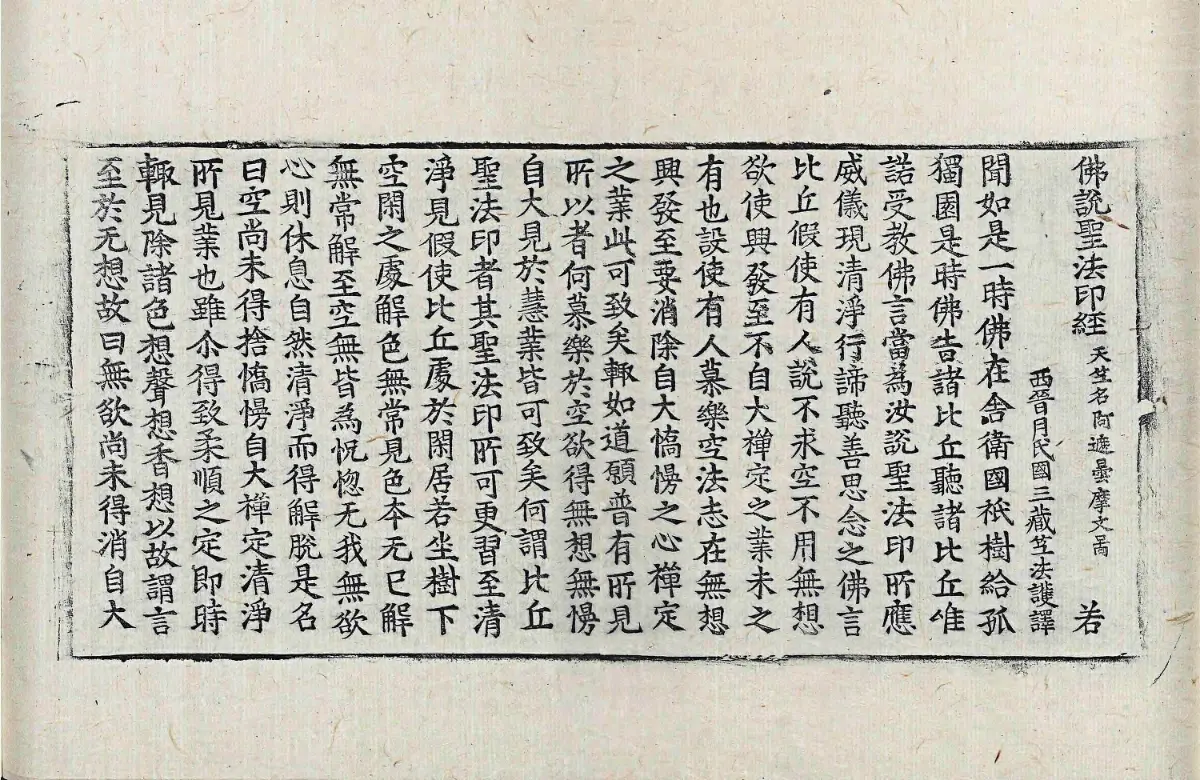 佛說聖法印经 天竺名阿遮曇摩文啚 若
西晉月氏國三藏竺法護譯
聞如是一時佛在舍衛國祇樹給孤
獨園是時佛告諸比丘聽諸比丘唯
諾受教佛言當為汝說聖法印所應
威儀現清淨行諦聽善思念之佛言
比丘假使有人說不求空不用無想
欲使興發至不自大禅定之業未之
有也設使有人慕樂空法志在無想
興發至要消除自大憍慢之心禅定
之業此可致矣輙如道願普有所見
所以者何慕樂於空欲得無想無慢
自大見於慧業皆可致矣何謂比丘
聖法印者其聖法印所可更習至清
淨見假使比丘處於閑居若坐樹下
空閑之處解色無常見色本无已解
無常解至空無皆為怳惚无我無欲
心則休息自然清淨而得解脫是名
曰空尚未得捨憍慢自大禅定清淨
所見業也雖尒得致柔順之定即時
輙見除諸色想聲想香想以故謂言
至於无想故曰無欲尚未得消自大